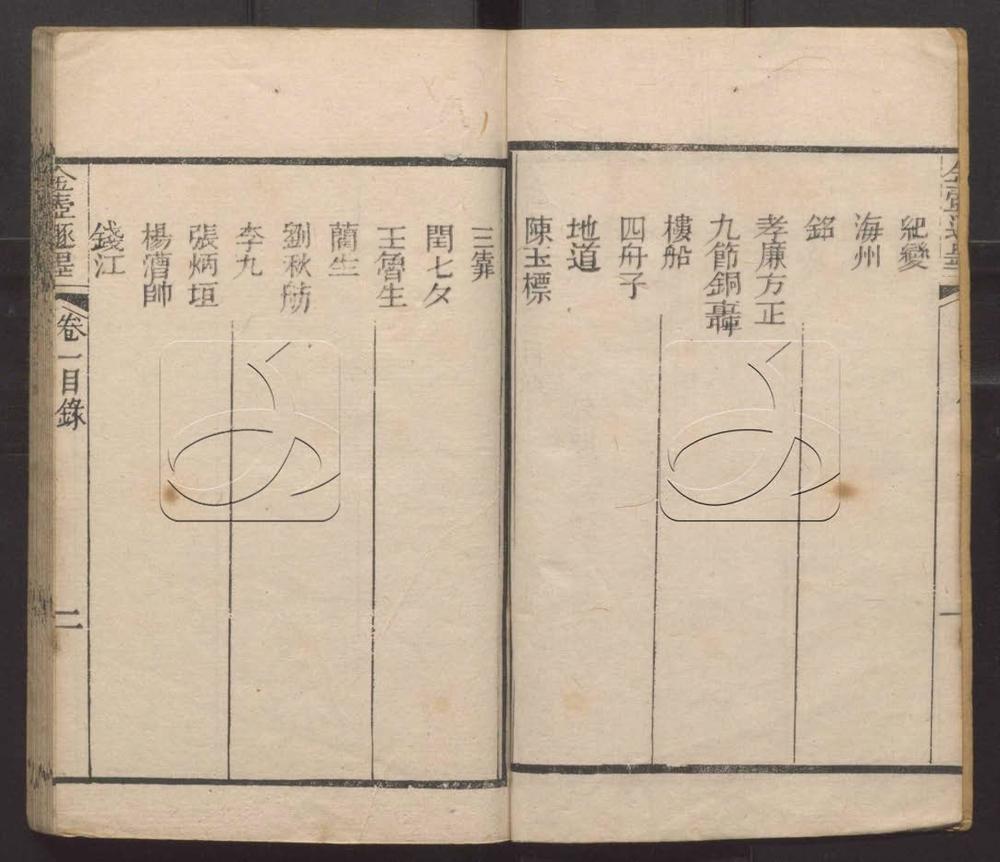 紀變
海州
銘
孝廉方正
九節銅轟
樓船
四舟子
地道
陳玉標
三靠
閏七夕
王魯生
藺生
劉秋舫
李九
張炳垣
楊漕帥
錢江
金壺遯墨
卷一目錄
二